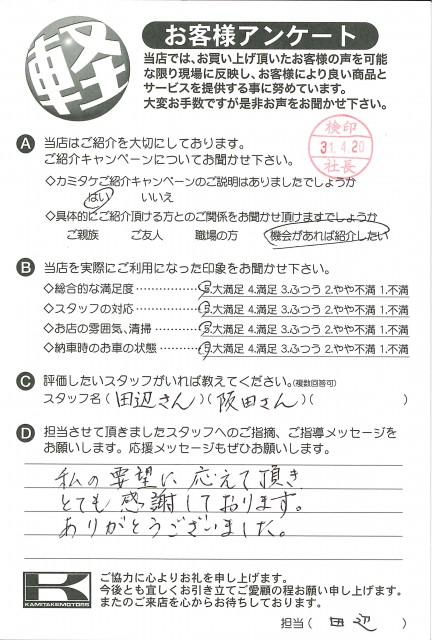 軽
お客様アンケート
当店では、お買い上げ頂いたお客様の声を可能
な限り現場に反映し、お客様により良い商品と
サービスを提供する事に努めています。
大変お手数ですが是非お声をお聞かせ下さい。
検印
31.4.20
社長
A 当店はご紹介を大切にしております。
ご紹介キャンペーンについてお聞かせ下さい。
◇カミタケご紹介キャンペーンのご説明はありましたでしょうか
はい いいえ
◇具体的にご紹介頂ける方とのご関係をお聞かせ頂けますでしょうか
ご親族 ご友人 職場の方 機会があれば紹介したい
B 当店を実際にご利用になった印象をお聞かせ下さい。
◇総合的な満足度 ……………… 5.大満足 4.満足 3.ふつう 2.やや不満 1.不満
◇スタッフの対応 ……………… 5.大満足 4.満足 3.ふつう 2.やや不満 1.不満
◇お店の雰囲気、清掃 ………… 5.大満足 4.満足 3.ふつう 2.やや不満 1.不満
◇納車時のお車の状態 ………… 5.大満足 4.満足 3.ふつう 2.やや不満 1.不満
C 評価したいスタッフがいれば教えてください。(複数回答可)
スタッフ名 ( 田辺さん )( 阪田さん )( )
D 担当させて頂きましたスタッフへのご指摘、ご指導メッセージを
お願いします。応援メッセージもぜひお願いします。
私の要望に応えて頂き
とても感謝しております。
ありがとうございました。
K
KAMITAKEMOTORS
ご協力に心よりお礼を申し上げます。
今後とも宜しくお引き立てご愛顧の程お願い申し上げます。
またのご来店を心からお待ちしております。
担当 ( 田辺 )